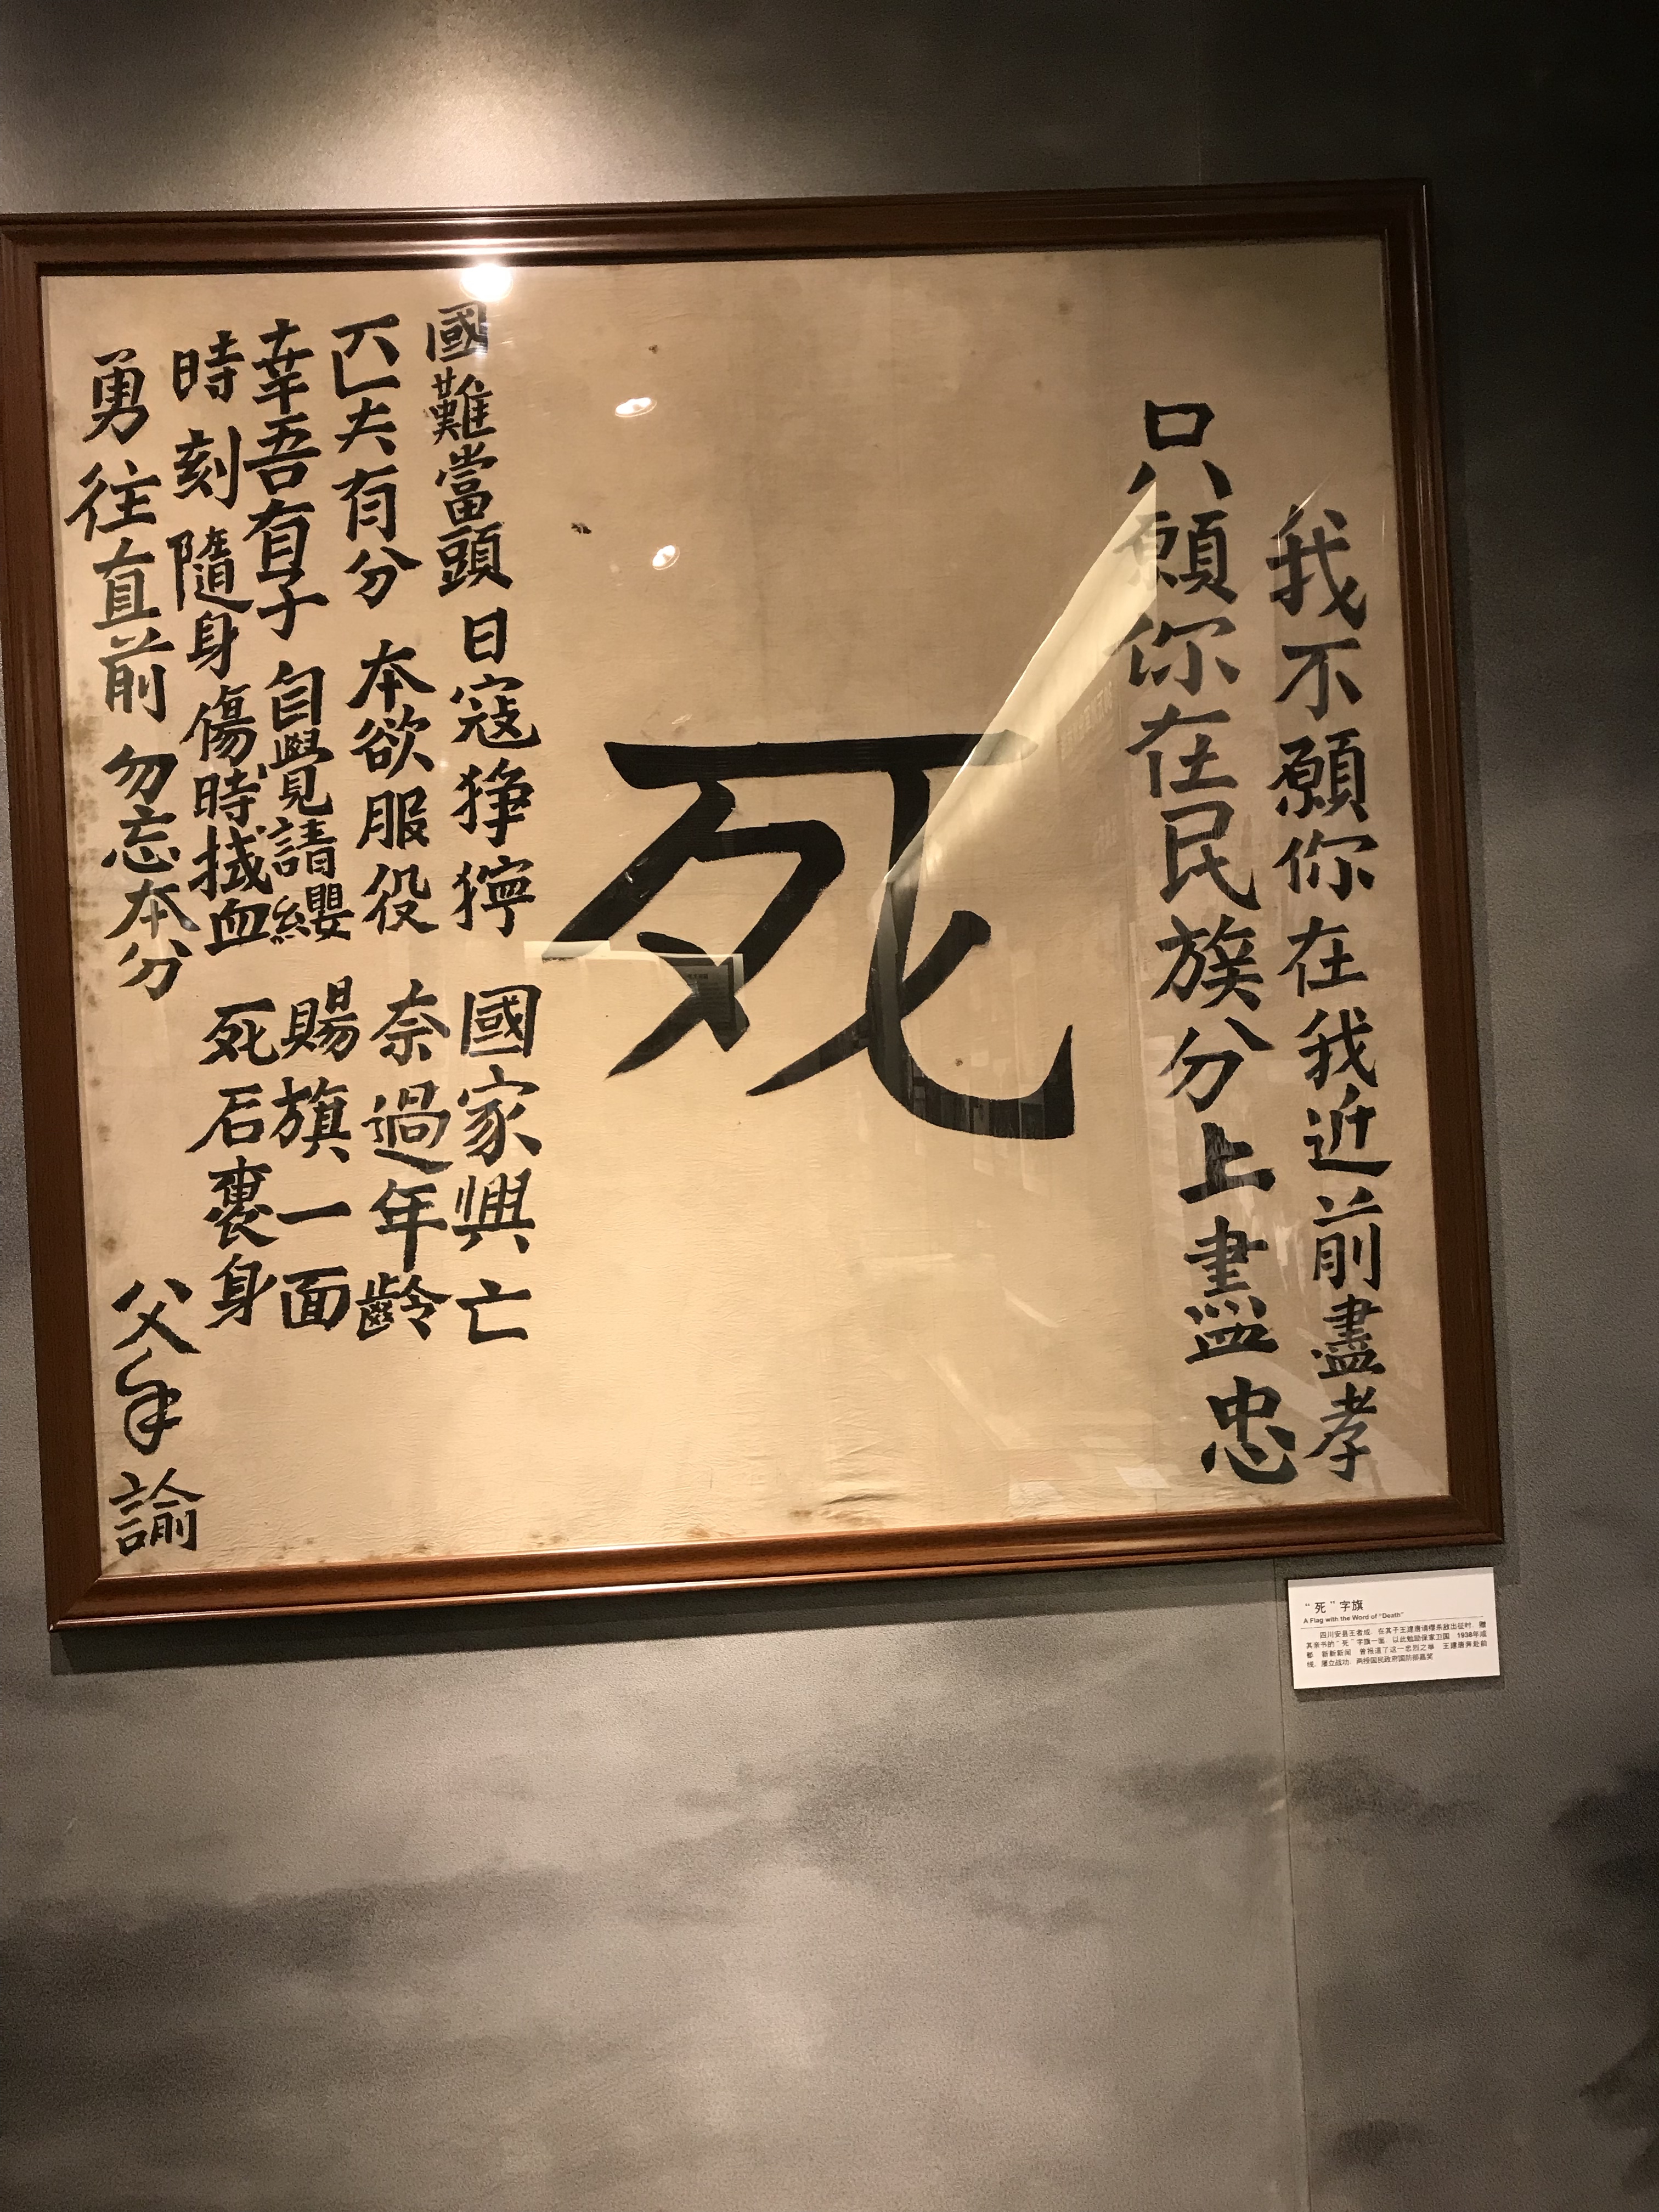 我不願你在我近前盡孝
只願你在民族分上盡忠
死
國難當頭 日寇猙獰 國家興亡
匹夫有分 本欲服役 奈過年齡
幸吾有子 自覺請纓 賜旗一面
時刻隨身 傷時拭血 死後裹身
勇往直前 勿忘本分
父手諭
“死”字旗
A Flag with the Word of "Death"
四川安县王者成,在其子王建唐请缨杀敌出征时,赠
其亲书的“死”字旗一面,以此勉励保家卫国。1938年成
都《新新新闻》曾报道了这一忠烈之举。王建唐奔赴前
线,屡立战功,两授国民政府国防部嘉奖